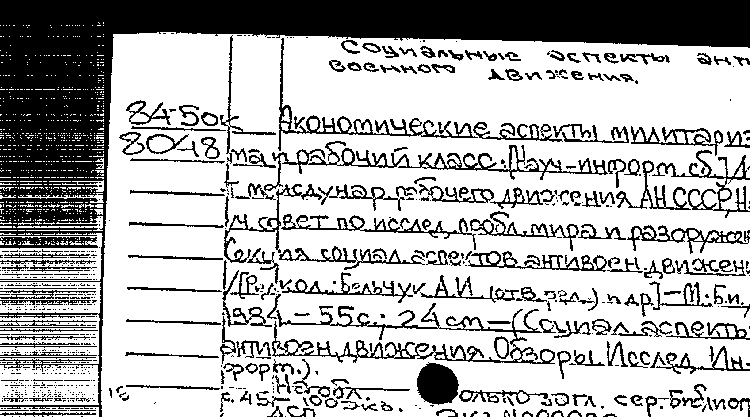 Социальные аспекты анти
военного движения.
84-50к
8048
Экономические аспекты милитариз
ма и рабочий класс: [Науч-информ. сб.] /И
т междунар. рабочего движения АН СССР, На
уч. совет по исслед. пробл. мира и разоружен
Секция социал. аспектов антивоен. движени
/[Редкол.: Бельчук А.И. (отв. ред.) и др.] — М.: Б.и.,
1984. – 55 с.; 24 см — (Социал. аспекты
антивоен. движения. Обзоры. Исслед. Ин-
форм.).
На обл.
только загл. сер.
с. 45
100 экз.
ДСП